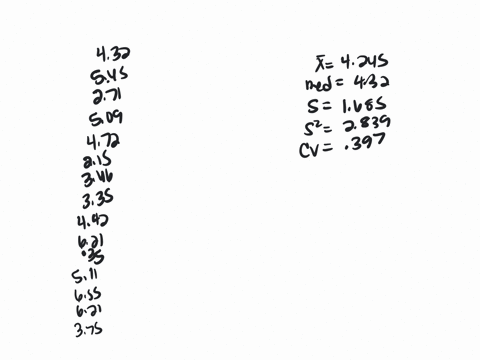 4.32
5.45
2.71
5.09
4.72
2.15
3.46
3.35
4.42
6.21
.35
5.11
6.55
6.21
3.75
x̄ = 4.245
med = 4.32
S = 1.685
S² = 2.839
CV = .397